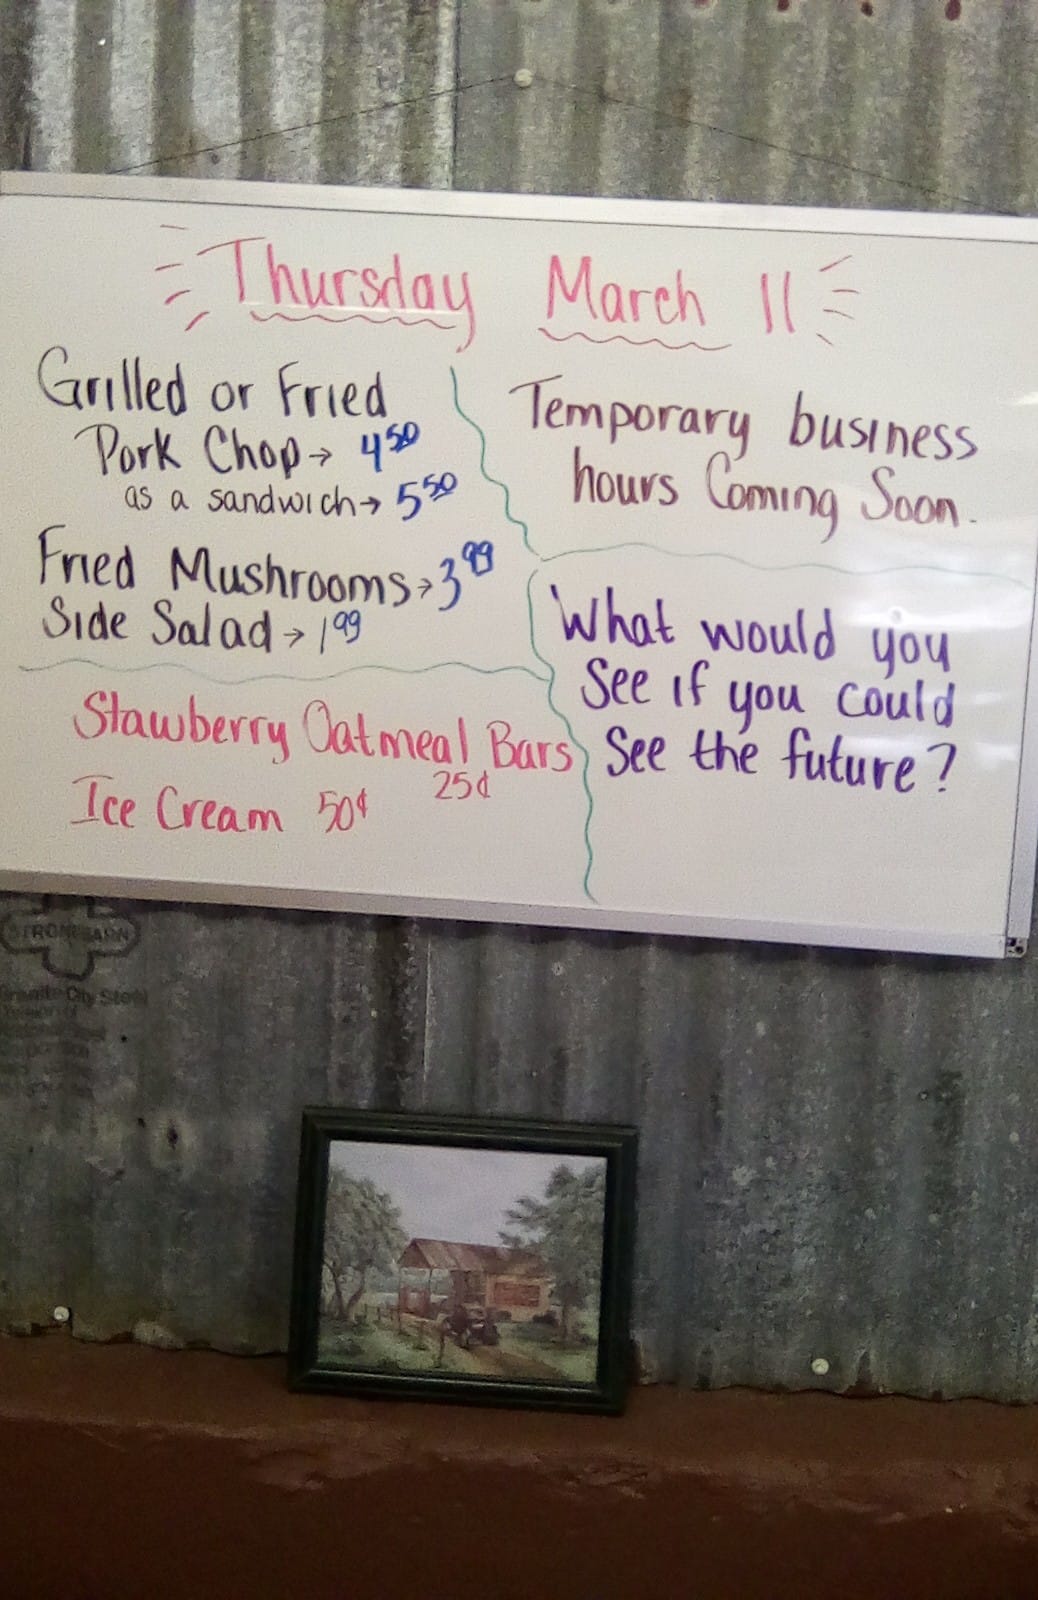 Thursday March 11
Grilled or Fried
Pork Chop → 4 50
as a sandwich → 5 50
Fried Mushrooms → 3 99
Side Salad → 1 99
Stawberry Oatmeal Bars
25¢
Ice Cream 50¢
Temporary business
hours Coming Soon.
What would you
See if you could
See the future?
STRONGBARN
Granite City Steel